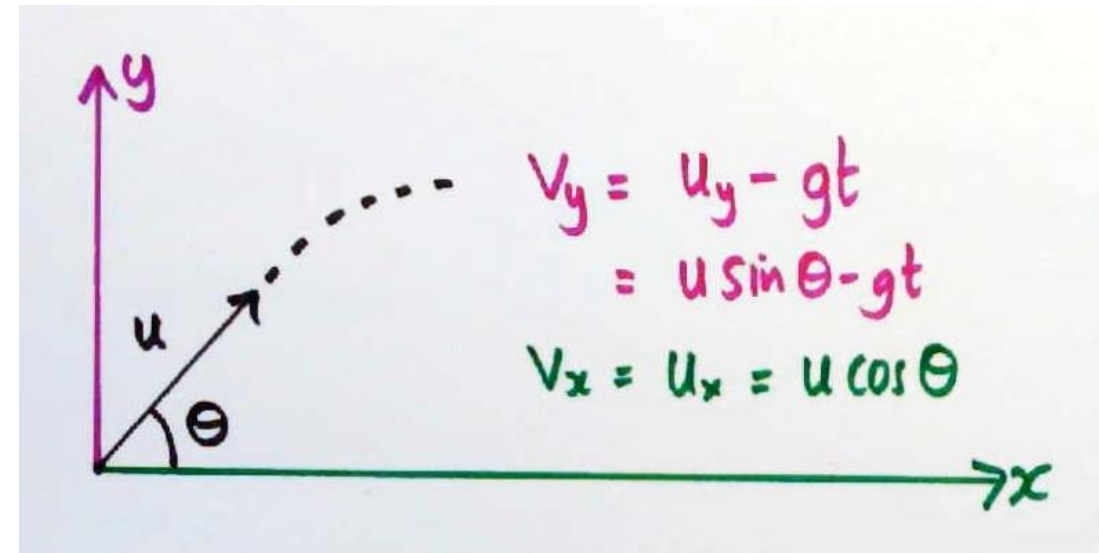 y
Vy = uy - gt
= u sin θ - gt
u
Vx = ux = u cos θ
θ
x